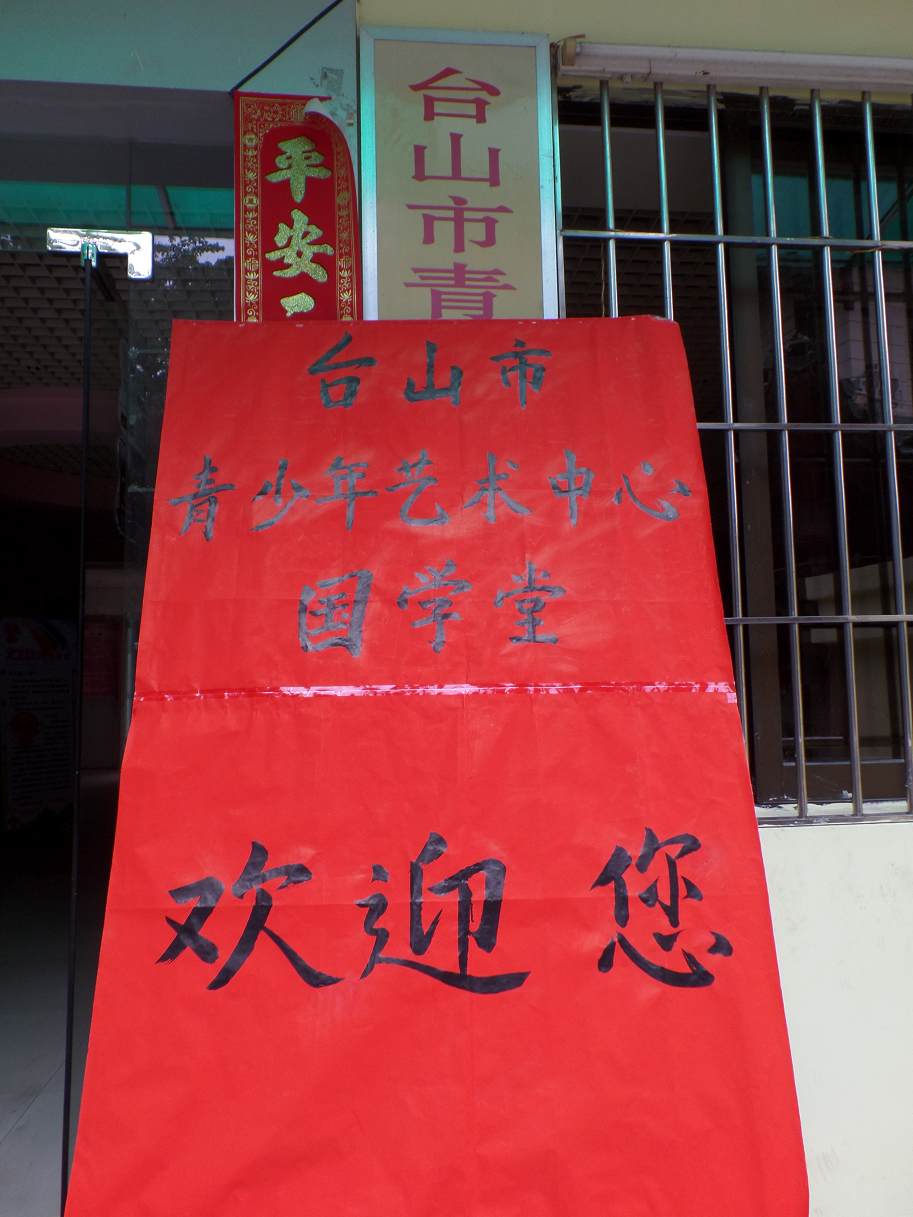 平安
台山市青
台山市
青少年艺术中心
国学堂
欢迎您